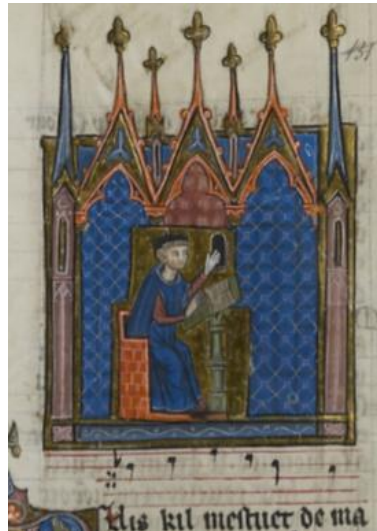 Uis kil mestuet de ma